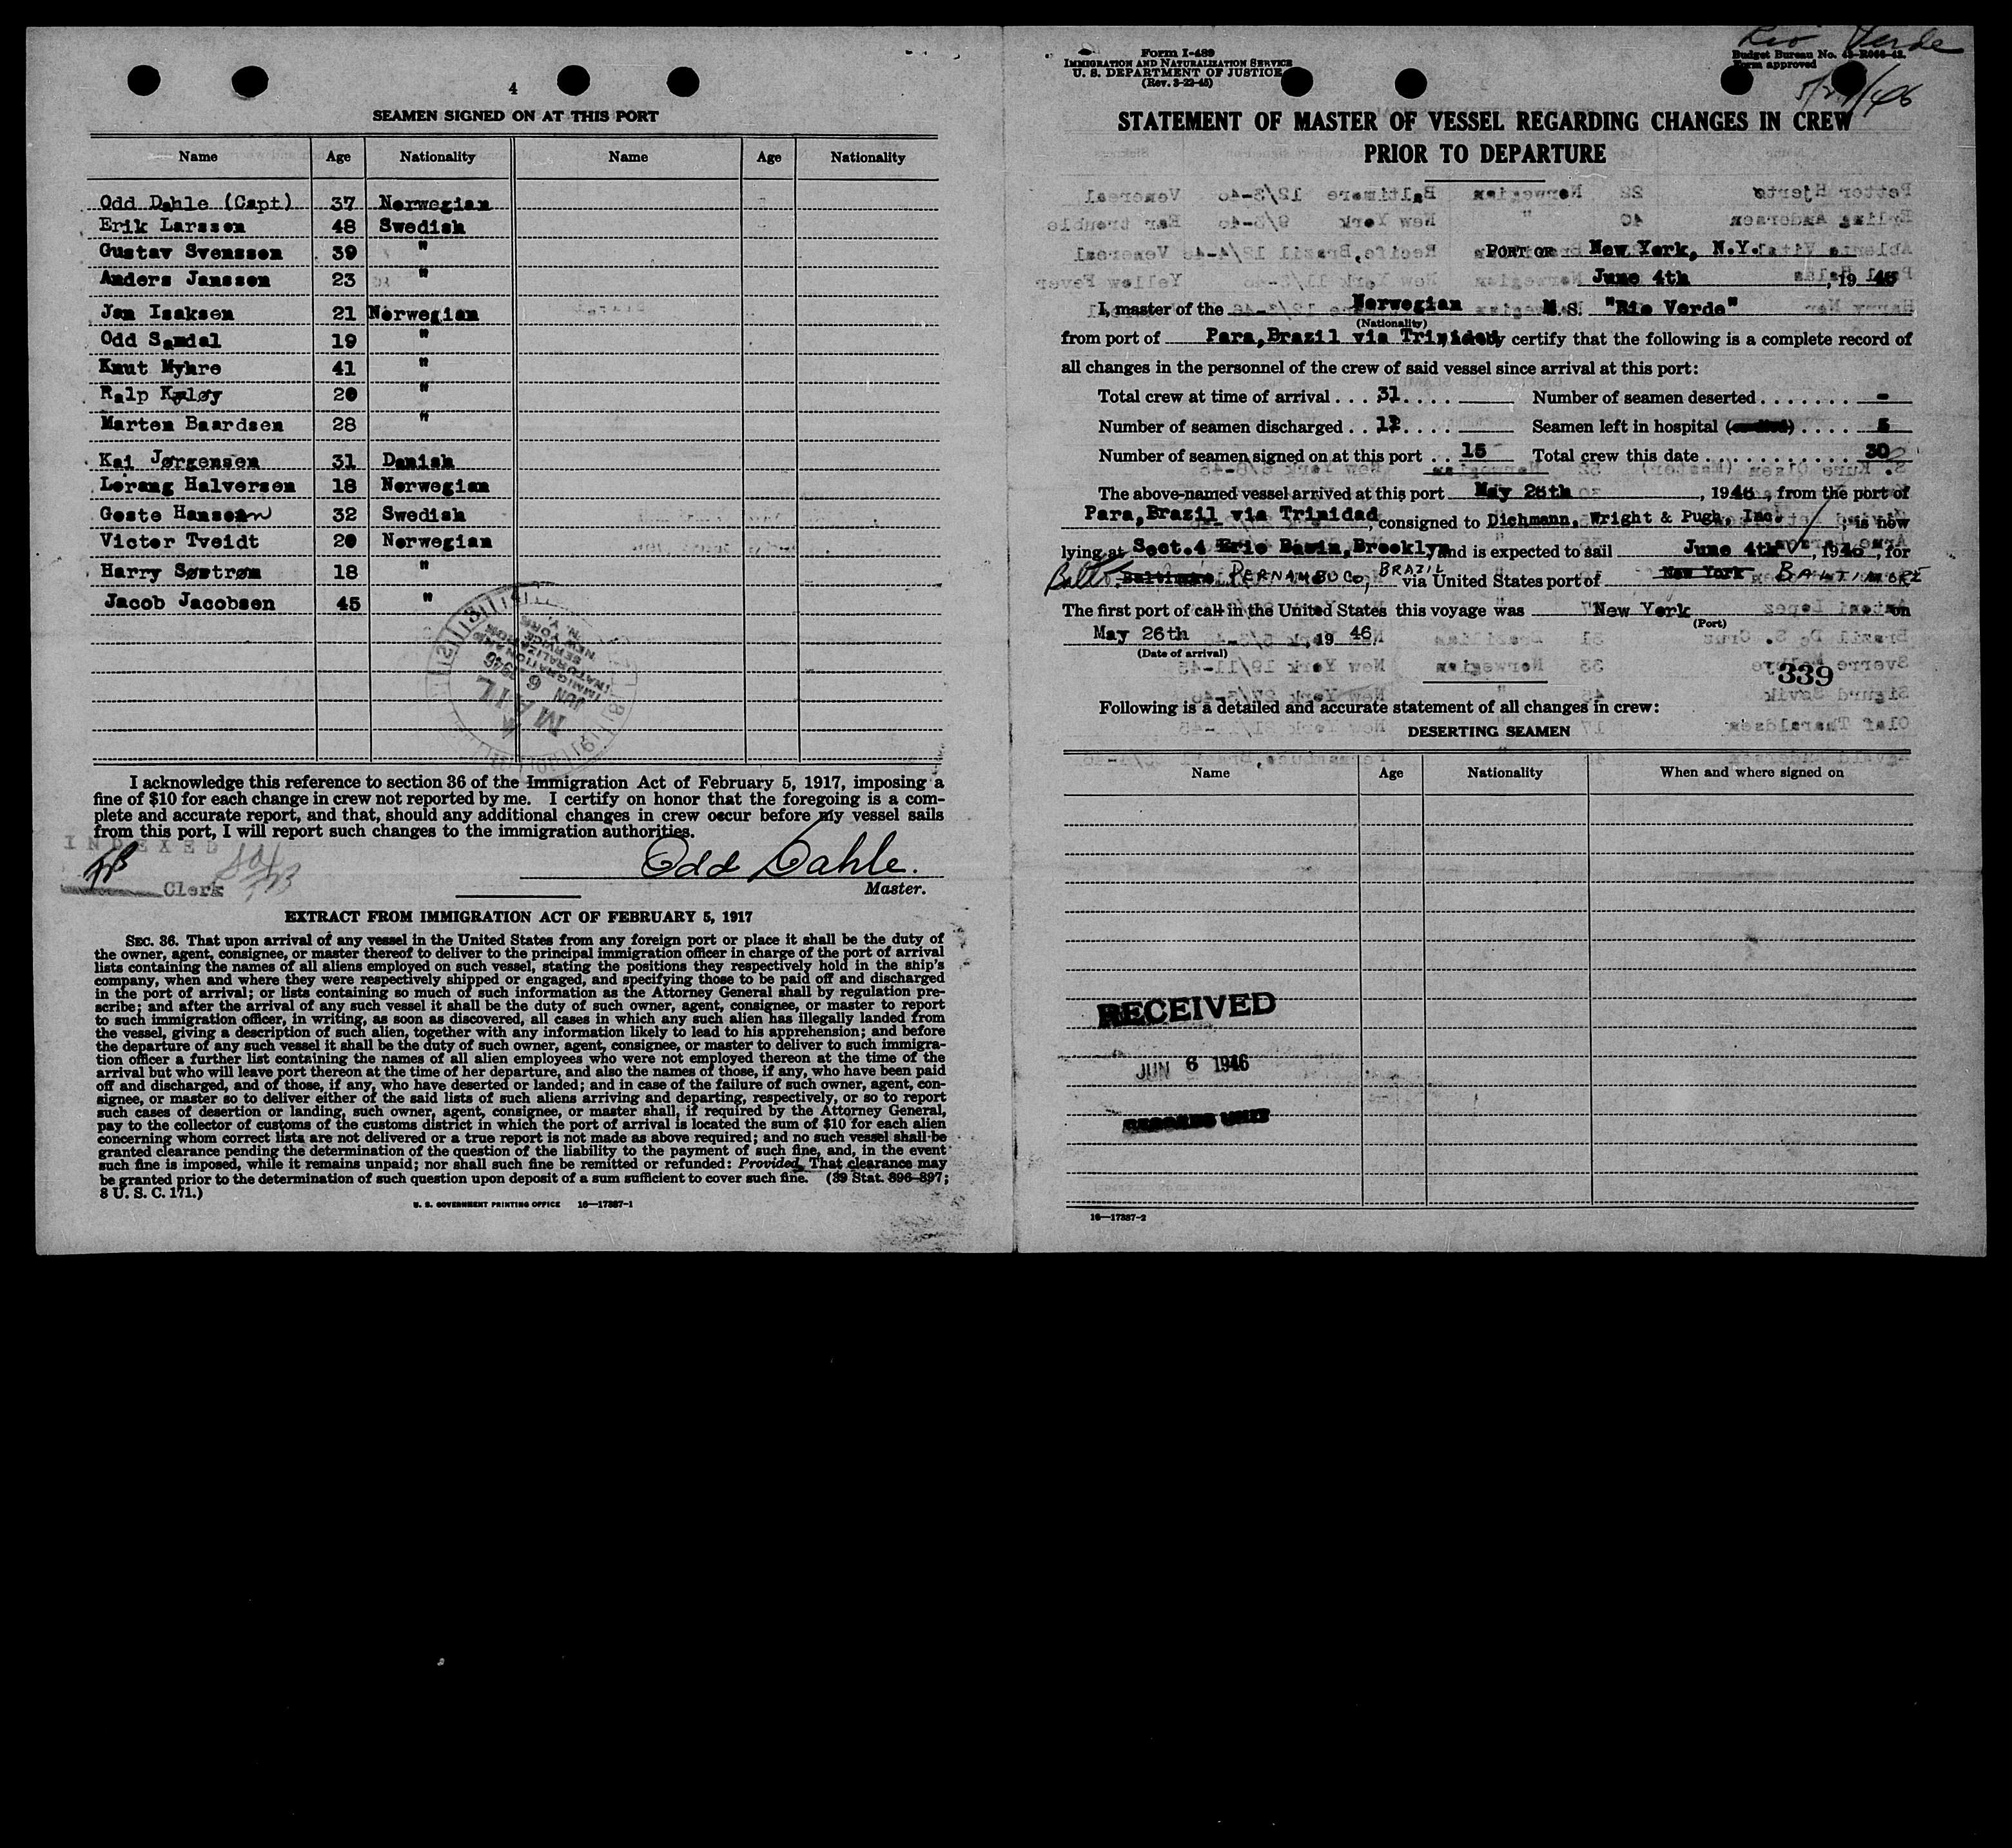 4
SEAMEN SIGNED ON AT THIS PORT
Name Age Nationality Name Age Nationality
Odd Dahle (Capt) 37 Norwegian
Erik Larssen 48 Swedish
Gustav Svenssen 39 "
Anders Janssen 23 "
Jan Isaksen 21 Norwegian
Odd Sandal 19 "
Knut Myhre 41 "
Ralp Kaløy 20 "
Marten Baardsen 28 "
Kai Jørgensen 31 Danish
Lorang Halversen 18 Norwegian
Goste Hansson 32 Swedish
Victor Tveidt 20 Norwegian
Harry Søstrøm 18 "
Jacob Jacobsen 45 "
IMMIGRATION AND
NATURALIZATION
SERVICE
NEW YORK
N. Y.
JUN 6 1946
MAIL
I acknowledge this reference to section 36 of the Immigration Act of February 5, 1917, imposing a
fine of $10 for each change in crew not reported by me. I certify on honor that the foregoing is a com-
plete and accurate report, and that, should any additional changes in crew occur before my vessel sails
from this port, I will report such changes to the immigration authorities.
INDEXED
Odd Dahle.
Clerk
Master.
EXTRACT FROM IMMIGRATION ACT OF FEBRUARY 5, 1917
SEC. 36. That upon arrival of any vessel in the United States from any foreign port or place it shall be the duty of
the owner, agent, consignee, or master thereof to deliver to the principal immigration officer in charge of the port of arrival
lists containing the names of all aliens employed on such vessel, stating the positions they respectively hold in the ship's
company, when and where they were respectively shipped or engaged, and specifying those to be paid off and discharged
in the port of arrival; or lists containing so much of such information as the Attorney General shall by regulation pre-
scribe; and after the arrival of any such vessel it shall be the duty of such owner, agent, consignee, or master to report
to such immigration officer, in writing, as soon as discovered, all cases in which any such alien has illegally landed from
the vessel, giving a description of such alien, together with any information likely to lead to his apprehension; and before
the departure of any such vessel it shall be the duty of such owner, agent, consignee, or master to deliver to such immigra-
tion officer a further list containing the names of all alien employees who were not employed thereon at the time of the
arrival but who will leave port thereon at the time of her departure, and also the names of those, if any, who have been paid
off and discharged, and of those, if any, who have deserted or landed; and in case of the failure of such owner, agent, con-
signee, or master so to deliver either of the said lists of such aliens arriving and departing, respectively, or so to report
such cases of desertion or landing, such owner, agent, consignee, or master shall, if required by the Attorney General,
pay to the collector of customs of the customs district in which the port of arrival is located the sum of $10 for each alien
concerning whom correct lists are not delivered or a true report is not made as above required; and no such vessel shall be
granted clearance pending the determination of the question of the liability to the payment of such fine, and, in the event
such fine is imposed, while it remains unpaid; nor shall such fine be remitted or refunded: Provided, That clearance may
be granted prior to the determination of such question upon deposit of a sum sufficient to cover such fine. (39 Stat. 896-897;
8 U. S. C. 171.)
U. S. GOVERNMENT PRINTING OFFICE 16—17387-1
Rio Verde
Form I-489
IMMIGRATION AND NATURALIZATION SERVICE
U. S. DEPARTMENT OF JUSTICE
(Rev. 3-22-45)
Budget Bureau No. 43-R066-42.
Form approved
STATEMENT OF MASTER OF VESSEL REGARDING CHANGES IN CREW
PRIOR TO DEPARTURE
PORT OF New York, N.Y.
June 4th, 19 46
I, master of the Norwegian M.S. "Rio Verde"
(Nationality)
from port of Para,Brazil via Trinidad certify that the following is a complete record of
all changes in the personnel of the crew of said vessel since arrival at this port:
Total crew at time of arrival . . . 31 . . . . Number of seamen deserted . . . . . . . -
Number of seamen discharged . . 12 . . . . Seamen left in hospital . . . . 5
Number of seamen signed on at this port . . 15 Total crew this date . . . . . . . . . . . . 30
The above-named vessel arrived at this port May 26th, 1946, from the port of
Para,Brazil via Trinidad consigned to Dichmann, Wright & Pugh, Inc., is now
lying at Sect.4 Erie Basin,Brooklyn and is expected to sail June 4th, 1946, for
Balto. Baltimore PERNAMBUCO, BRAZIL via United States port of New York BALTIMORE
The first port of call in the United States this voyage was New York on
(Port)
May 26th, 19 46
(Date of arrival)
339
Following is a detailed and accurate statement of all changes in crew:
DESERTING SEAMEN
Name Age Nationality When and where signed on
RECEIVED
JUN 6 1946
RECORDS UNIT
16—17387-2